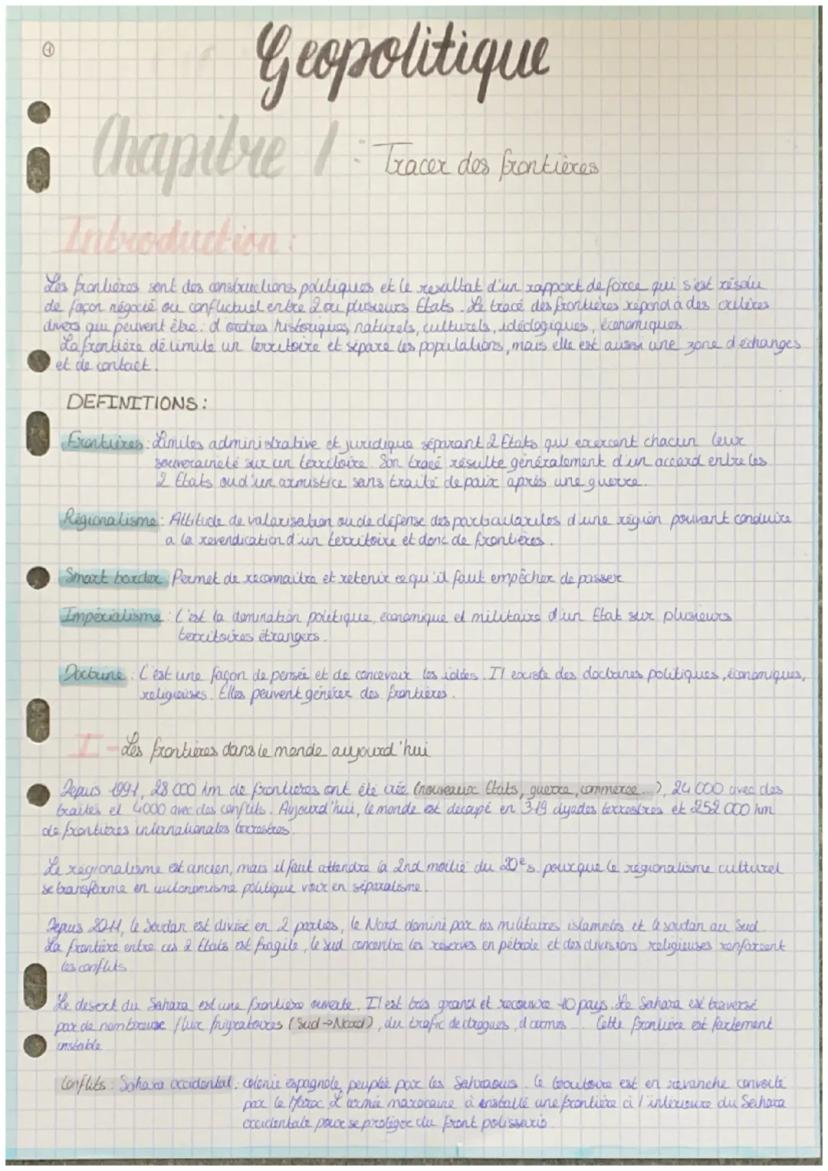 1
Geopolitique
Chapitre 1 : Tracer des frontières
Introduction :
Les frontières sont des constructions politiques et le resultat d'un rapport de force qui s'est résolu
de façon négocié ou conflictuel entre 2 ou plusieurs Etats. Le tracé des frontières répond à des critères
divers qui peuvent être : d'ordres historiques, naturels, culturels, idéologiques, économiques.
La frontière délimite un territoire et sépare les populations, mais elle est aussi une zone d'échanges
et de contact.
DEFINITIONS :
Frontières : Limites administrative et juridique séparant 2 Etats qui exercent chacun leur
souveraineté sur un territoire. Son tracé résulte généralement d'un accord entre les
2 Etats ou d'un armistice sans traité de paix après une guerre.
Régionalisme : Attitude de valorisation ou de défense des particularités d'une région pouvant conduire
a la revendication d'un territoire et donc de frontières.
Smart border Permet de reconnaitre et retenir ce qu'il faut empêcher de passer
Impérialisme : C'est la domination politique, économique et militaire d'un Etat sur plusieurs
territoires étrangers.
Doctrine : C'est une façon de pensée et de concevoir les idées. Il existe des doctrines politiques, économiques,
religieuses. Elles peuvent générer des frontières.
I - Les frontières dans le monde aujourd'hui
Depuis 1991, 28 000 km de frontières ont été créé (nouveaux Etats, guerre, commerce...), 24 000 avec des
traités et 4000 avec des conflits. Aujourd'hui, le monde est découpé en 319 dyades terrestres et 252 000 km
de frontières internationales terrestres.
Le régionalisme est ancien, mais il faut attendre la 2nd moitié du 20e s. pour que le régionalisme culturel
se transforme en autonomisme politique voir en séparatisme.
Depuis 2011, le Soudan est divisé en 2 parties, le Nord dominé par les militaires islamistes et le soudan au Sud.
La frontière entre ces 2 Etats est fragile, le sud concentre les réserves en pétrole et des divisions religieuses renforcent
les conflits.
Le desert du Sahara est une frontière ouverte. Il est très grand et recouvre 10 pays. Le Sahara est traversé
par de nombreuse flux migratoires (Sud → Nord), du trafic de drogues, d'armes... Cette frontière est fortement
instable.
Conflits : Sahara occidental : colonie espagnole, peuplée par les Sahraouis. Le territoire est en revanche convoité
par le Maroc. L'armée marocaine à installé une frontière à l'interieure du Sahara
occidentale pour se protéger du front polissario.